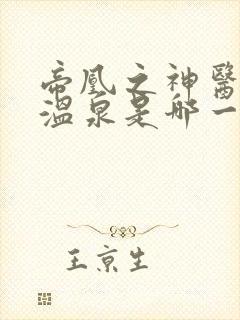 帝凰之神醫
溫泉是哪一
王京生